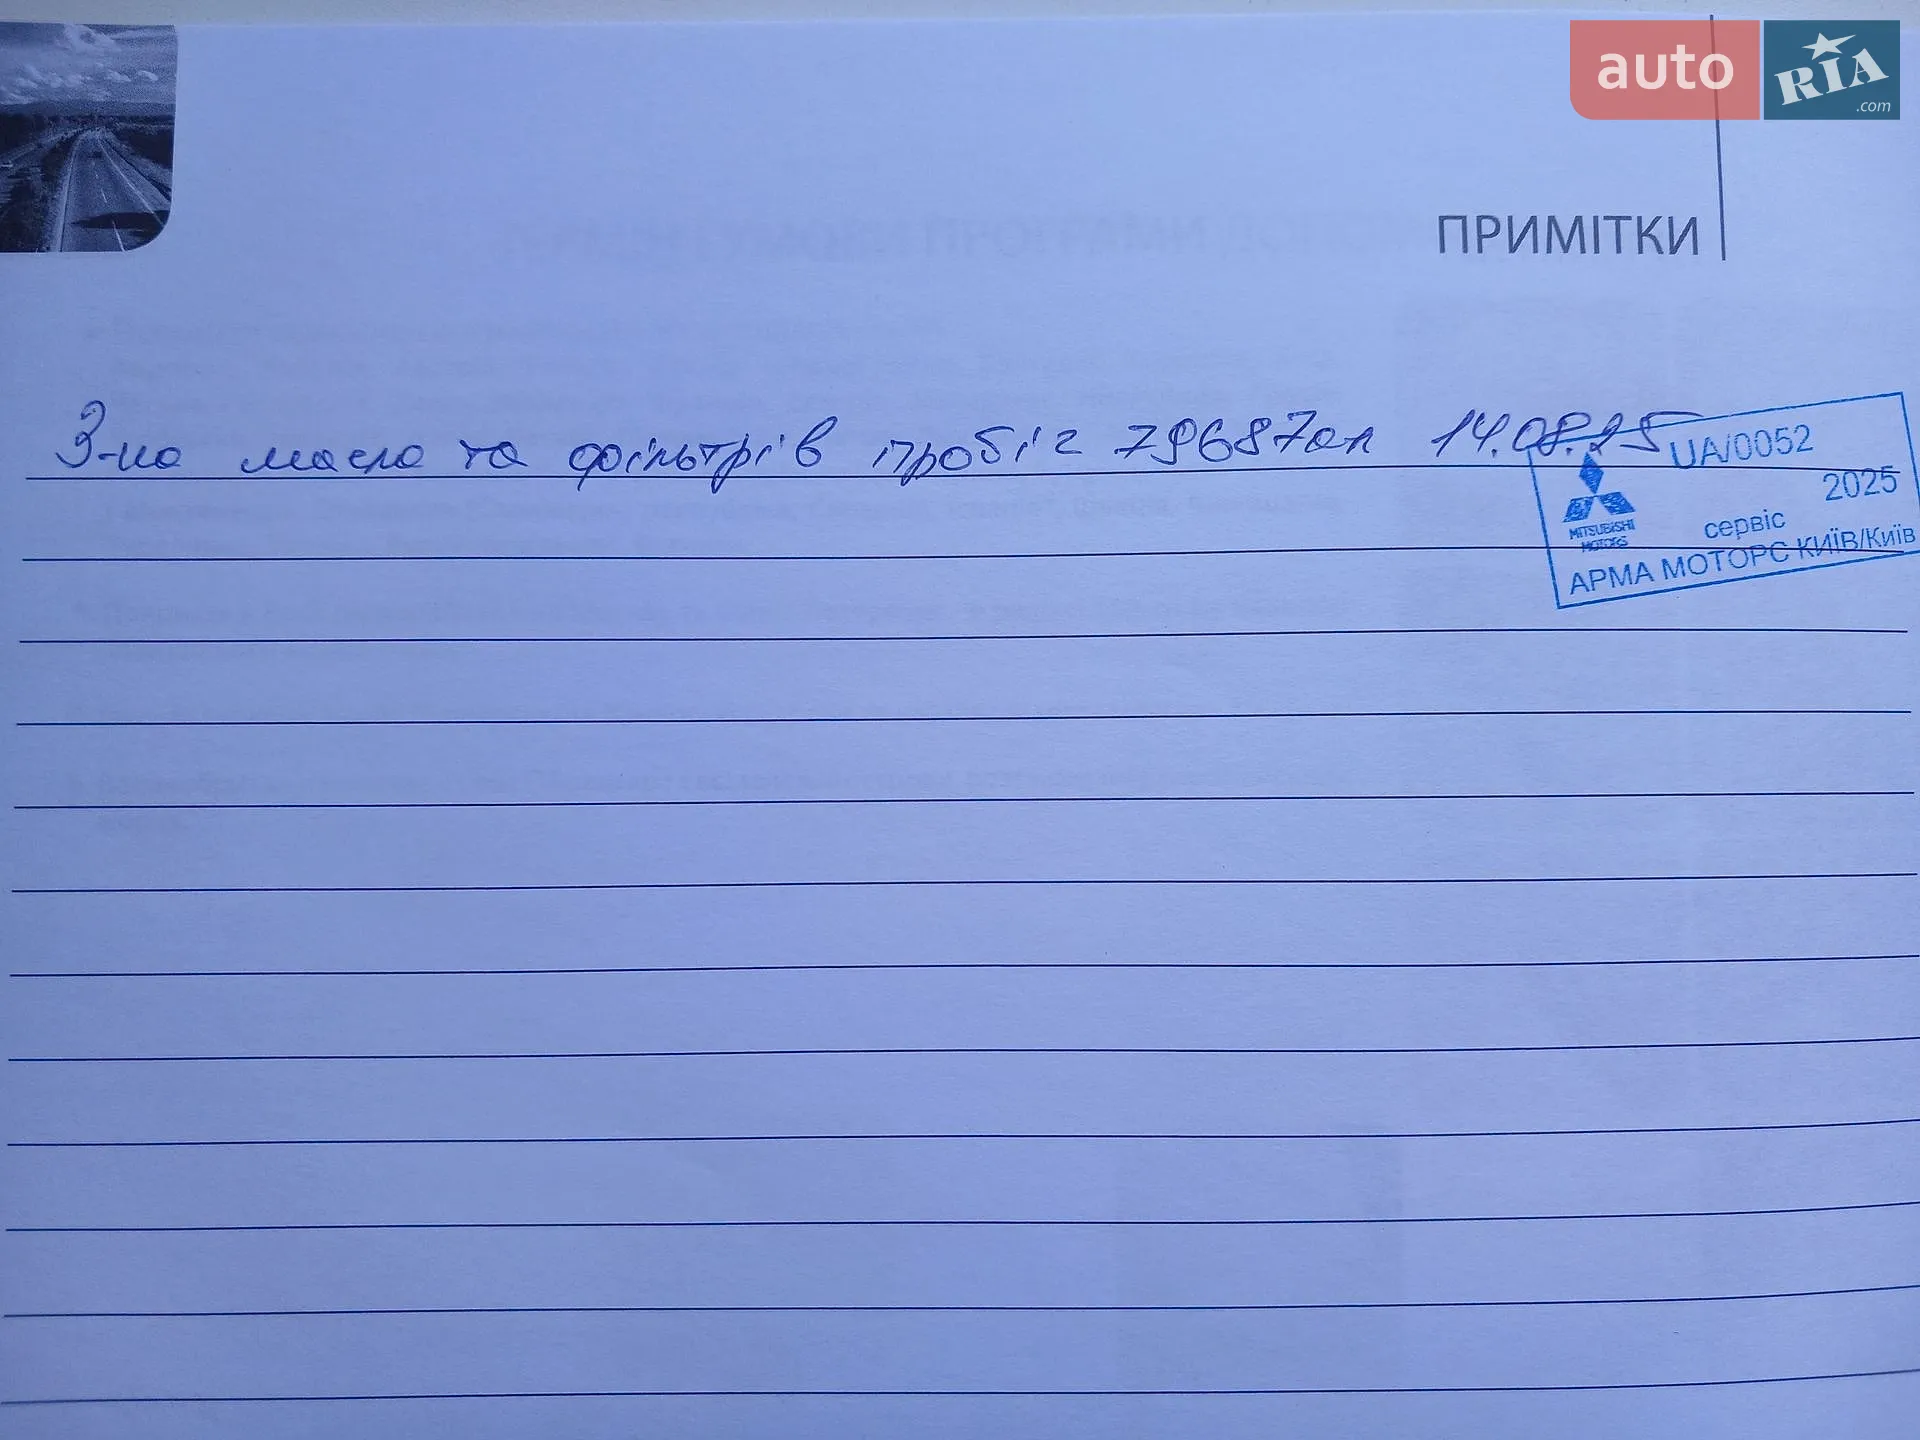 auto RIA .com
ПРИМІТКИ
З-на масла та фільтрів пробіг 79687км 14.08.25
UA/0052
2025
MITSUBISHI MOTORS
сервіс
АРМА МОТОРС КИЇВ/Київ